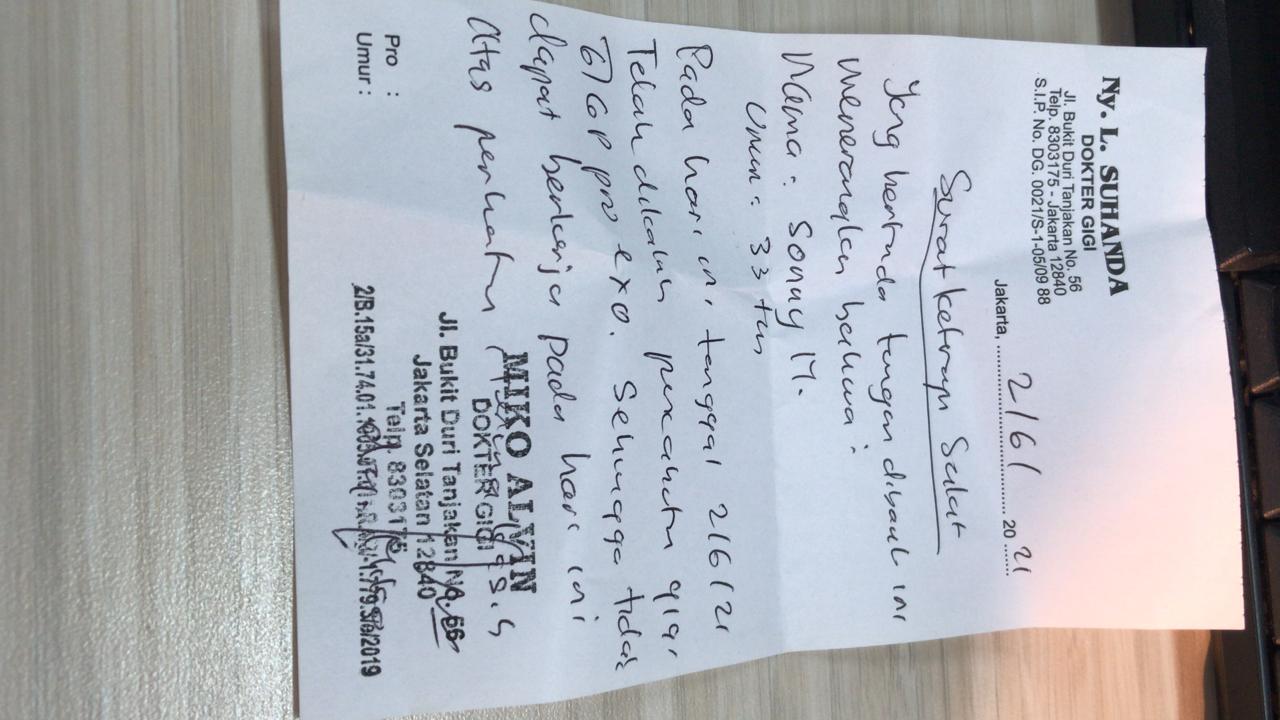 Ny. L. SUHANDA
DOKTER GIGI
Jl. Bukit Duri Tanjakan No. 56
Telp. 8303175 - Jakarta 12840
S.I.P. No. DG. 0021/S-1-05/09 88
Jakarta, 2/6/ 20 21
Surat Sakit
Yang bertanda tangan dibawah ini
menerangkan bahwa :
Nama : Sonny M.
Umur : 33 thn
Pada hari ini tanggal 2/6/21
Telah dilakukan gigi
pro exo. Sehingga tidak
dapat bekerja pada hari ini
Atas perhatian
MIKO ALVIN
DOKTER GIGI
Jl. Bukit Duri Tanjakan No. 56
Jakarta Selatan 12840
Telp. 8303175
Pro :
Umur :